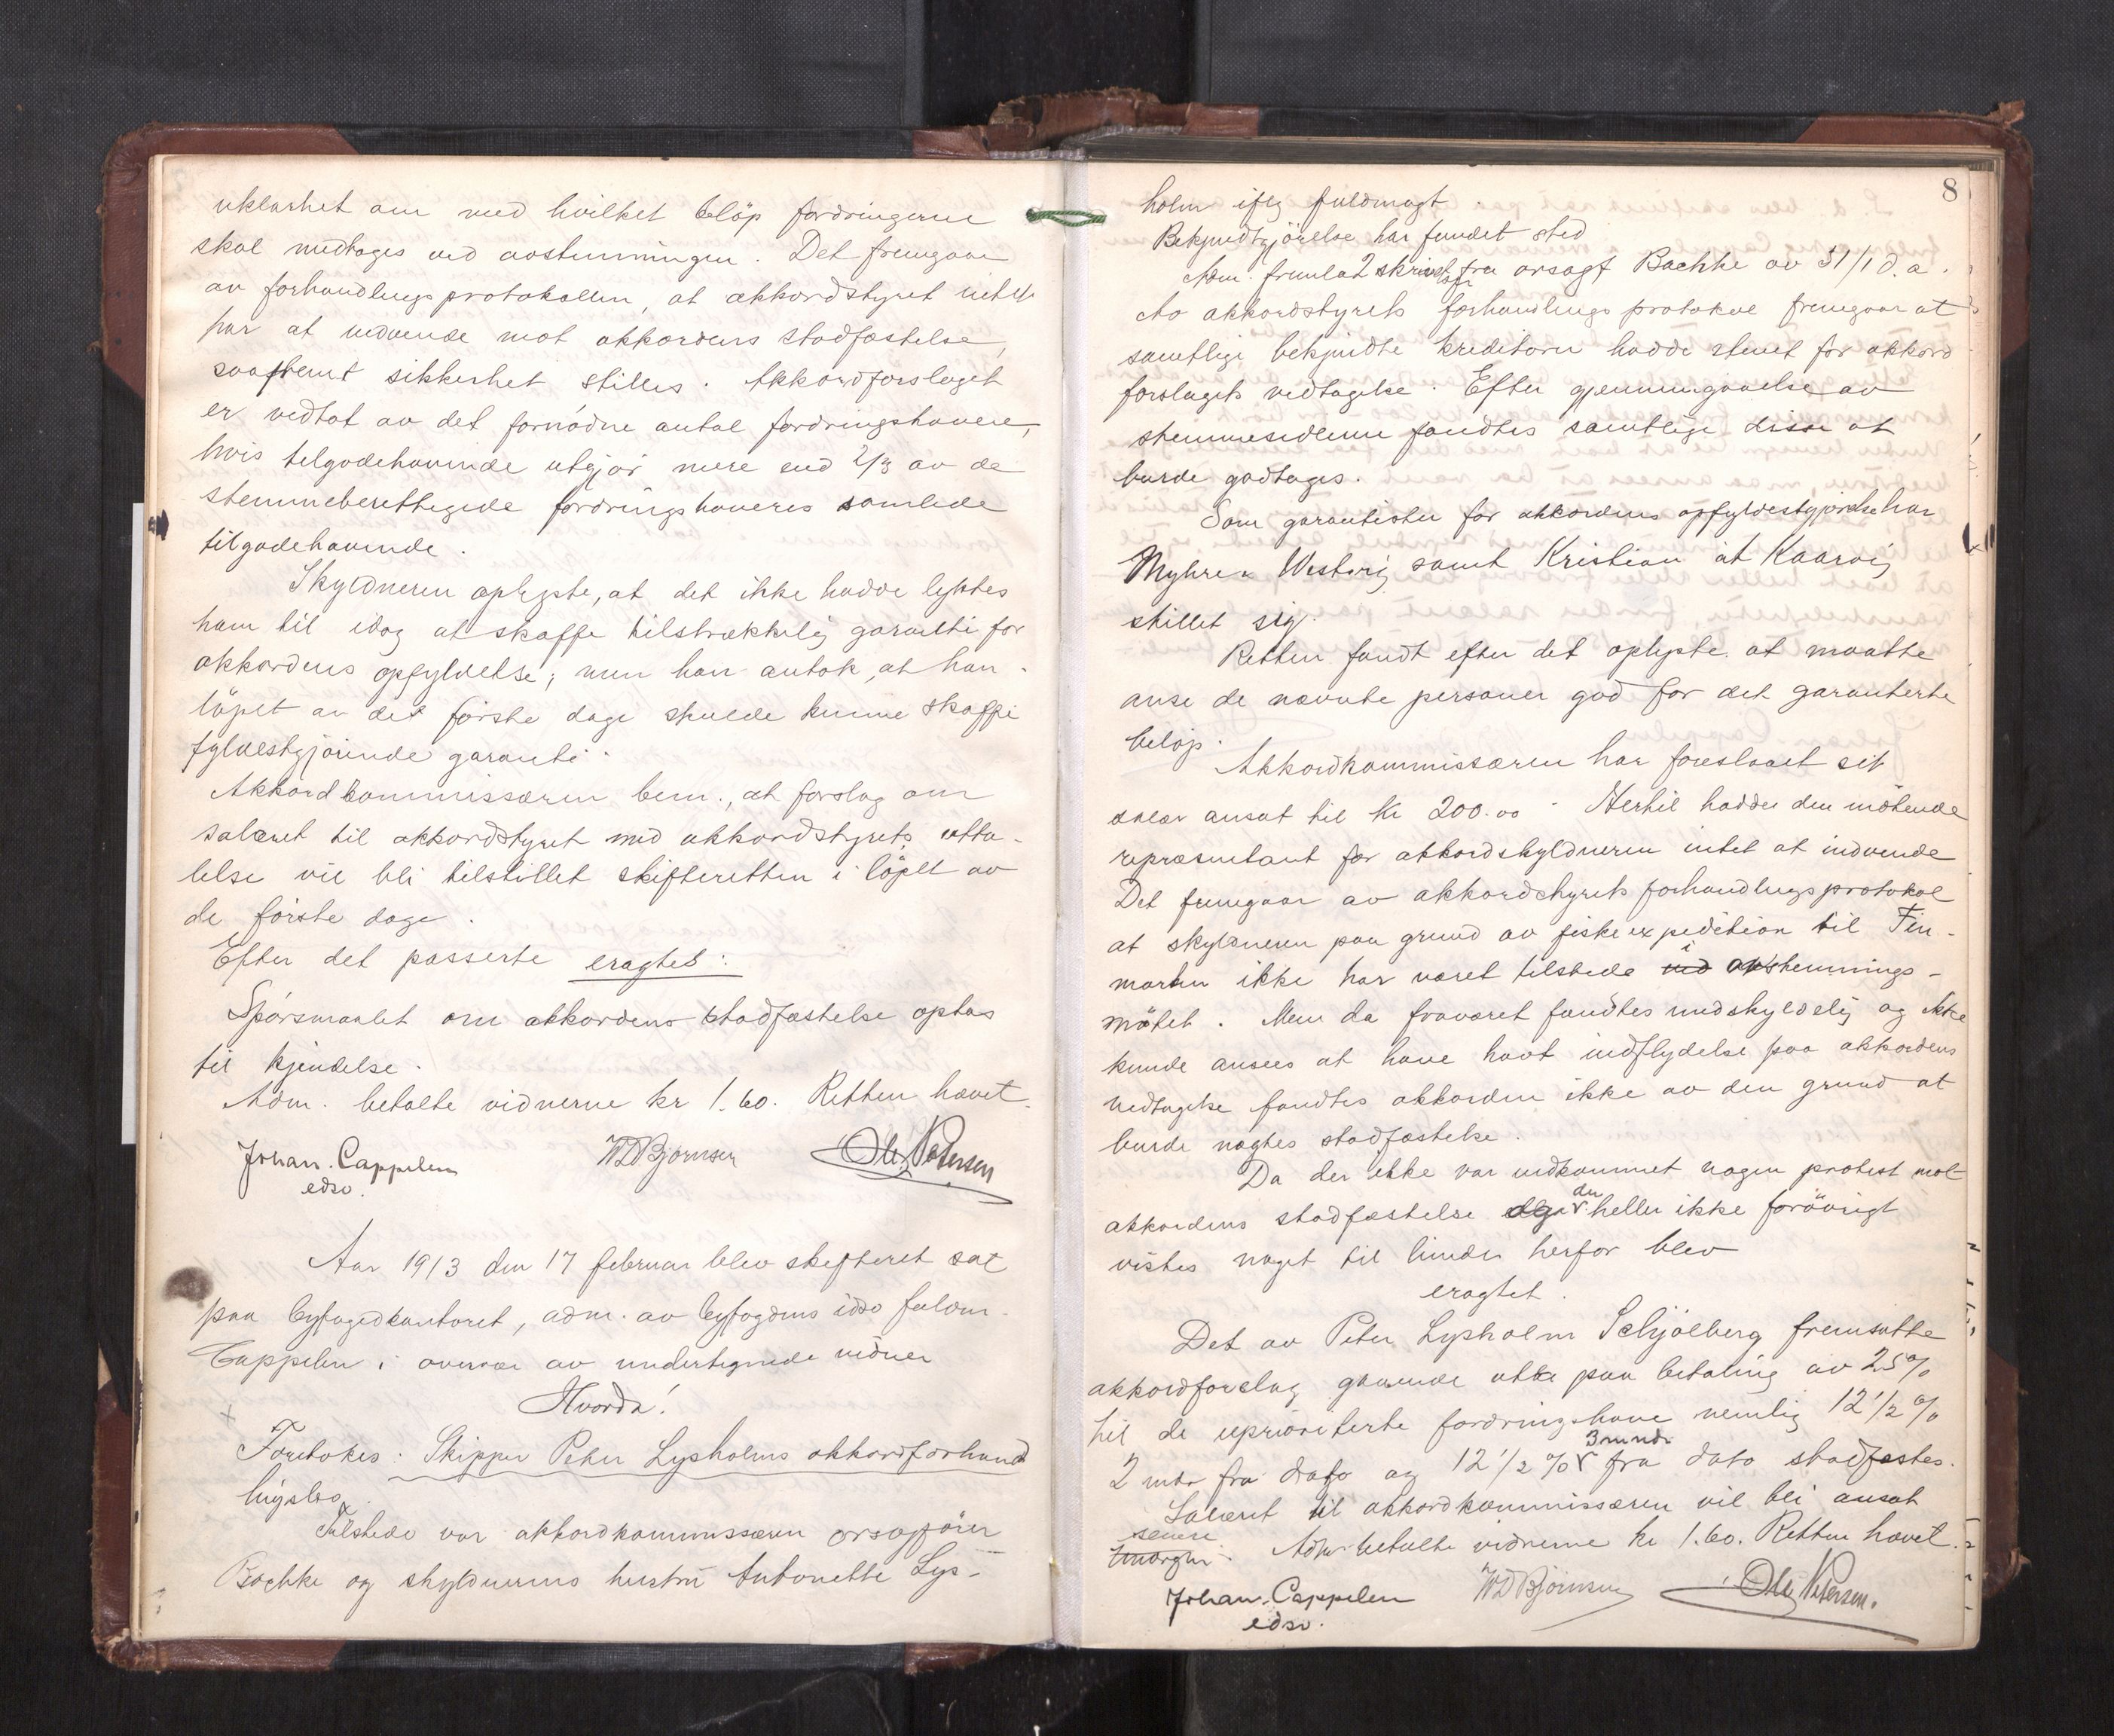 uklarhet om med hvilket beløp fordringerne
skal medtages ved avstemningen. Det fremgaar
av forhandlingsprotokollen, at akkordstyret intet
har at indvende mot akkordens stadfæstelse,
saafremt sikkerhet stilles. Akkordforslaget
er vedtat av det fornødne antal fordringshavere,
hvis tilgodehavende utgjør mere end 2/3 av de
stemmeberettigede fordringshaveres samlede
tilgodehavende.
Skyldneren oplyste, at det ikke hadde lyktes
ham til idag at skaffe tilstrækkelig garanti for
akkordens opfyldelse; men han antok, at han i
løpet av de første dage skulde kunne skaffe
fyldestgjørende garanti.
Akkordkommissæren bem., at forslag om
salæret til akkordstyret med akkordstyrets utta-
lelse vil bli tilstillet skifteretten i løpet av
de første dage.
Efter det passerte eragtet:
Spørsmaalet om akkordens stadfæstelse optas
til kjendelse.
Adm. betalte vidnerne kr 1.60. Retten hævet.
Johan. Cappelen WDBjørnsen Ole Petersen
edsv.
Aar 1913 den 17 februar blev skifteret sat
paa byfogedkontoret, adm. av byfogdens edsv fuldm.
Cappelen i overvær av undertegnede vidner
Hvorda!
Foretokes: Skipper Peter Lysholms akkordforhand
lingsbo.
Tilstede var akkordkommissæren orsagfører
Bachke og skyldnerens hustru Antonette Lys-
8
holm iflg fuldmagt.
Bekjendtgjørelse har fundet sted
Adm. fremla 2 skrivelser fra orsagf Bachke av 31/1 d.a.
Av akkordstyrets forhandlingsprotokol fremgaar at
samtlige bekjendte kreditorer hadde stemt for akkord
forslagets vedtagelse. Efter gjennemgaaelse av
stemmesedlerne fandtes samtlige disse at
burde godtages.
Som garantister for akkordens opfyldestgjørelse har
Myhre & Westvig samt Kristian at Kaarvig
stillet sig.
Retten fandt efter det oplyste at maatte
anse de nævnte personer god for det garanterte
beløp.
Akkordkommissæren har foreslaaet sit
salær ansat til kr 200.00. Hertil hadde den møtende
repræsentant for akkordskyldneren intet at indvende
Det fremgaar av akkordstyrets forhandlingsprotokol
at skyldneren paa grund av fiskeexpedition til Fin-
marken ikke har været tilstede ved i avstemnings-
møtet. Men da fraværet fandtes undskyldelig og ikke
kunde ansees at have havt indflydelse paa akkordens
vedtagelse fandtes akkorden ikke av den grund at
burde nægtes stadfæstelse.
Da der ikke var indkommet nogen protest mot
akkordens stadfæstelse og der heller ikke forøvrigt
vistes noget til hinder herfor blev
eragtet.
Det av Peter Lysholm Schjølberg fremsatte
akkordforslag gaaende ut paa betaling av 25 %
til de uprioriterte fordringshave nemlig 12 1/2 %
2 mdr fra dato og 12 1/2 % 3 mndr fra dato stadfæstes.
Salæret til akkordkommissæren vil bli ansat
senere imorgen. Adm betalte vidnerne kr 1.60. Retten hævet.
Johan. Cappelen WDBjørnsen Ole Petersen.
edsv.